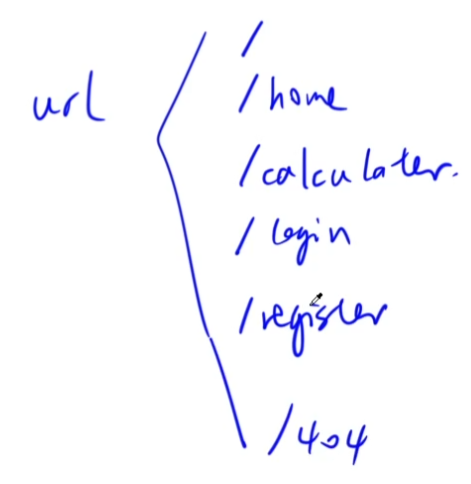 url
/
/home
/calculater.
/login
/register
/404